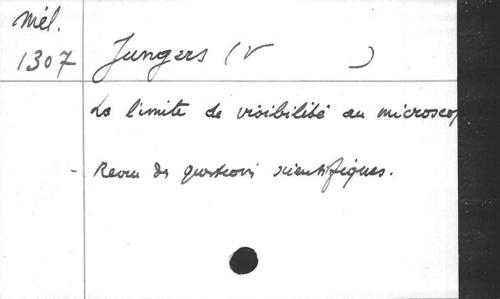 Mél.
1307
Jungers (V )
La limite de visibilité au microscop
- Revue des questions scientifiques.